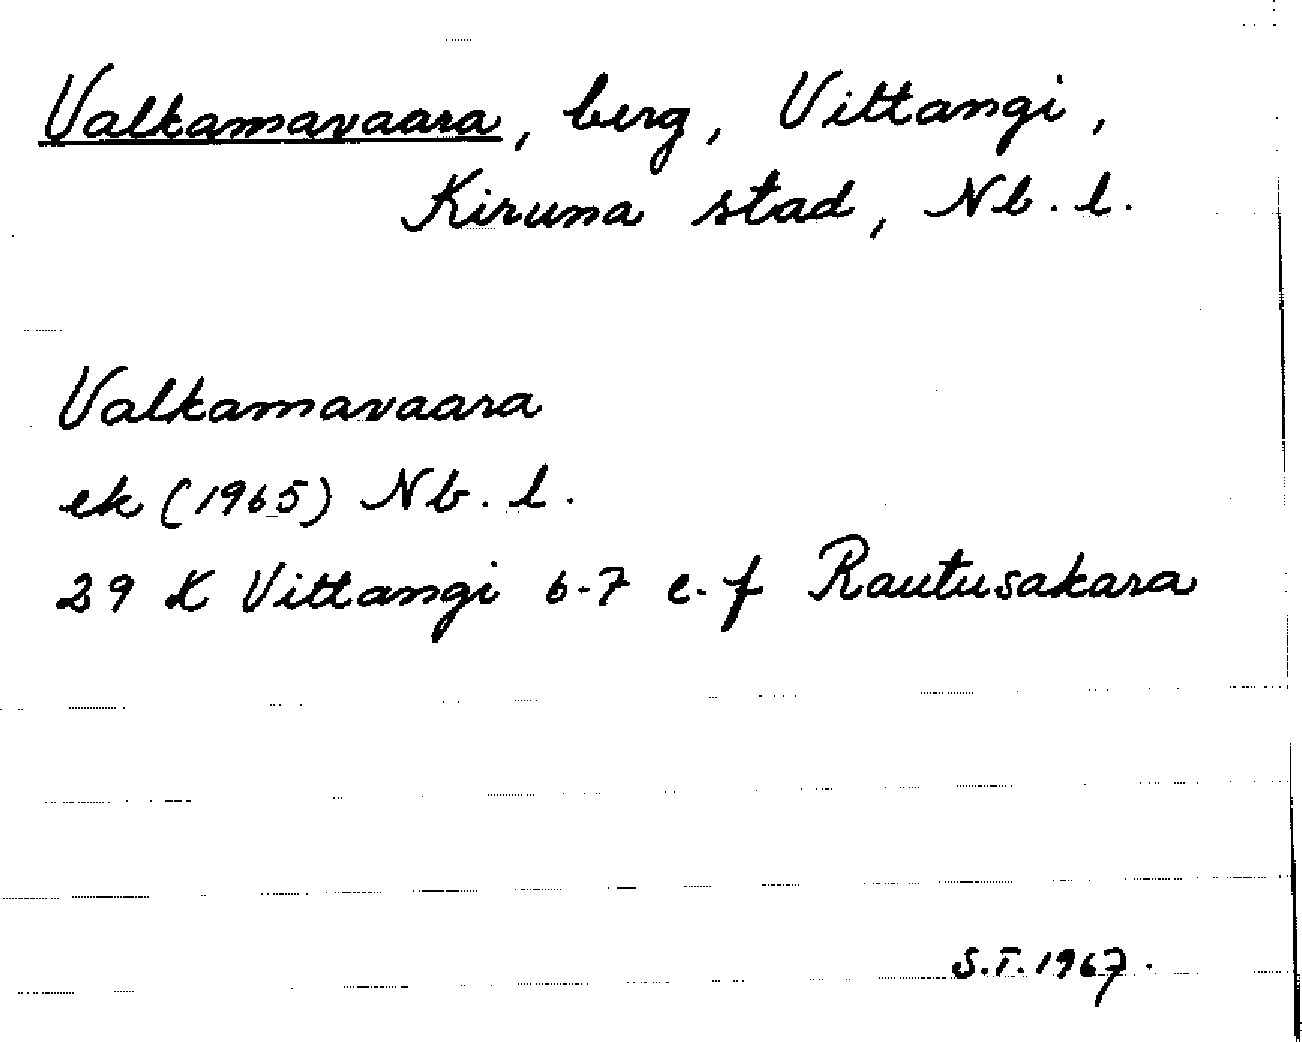 Valkamavaara, berg, Vittangi,
Kiruna stad, Nb. l.
Valkamavaara
ek (1965) Nb. l.
29 K Vittangi 6-7 e-f Rautusakara
S.T. 1967.